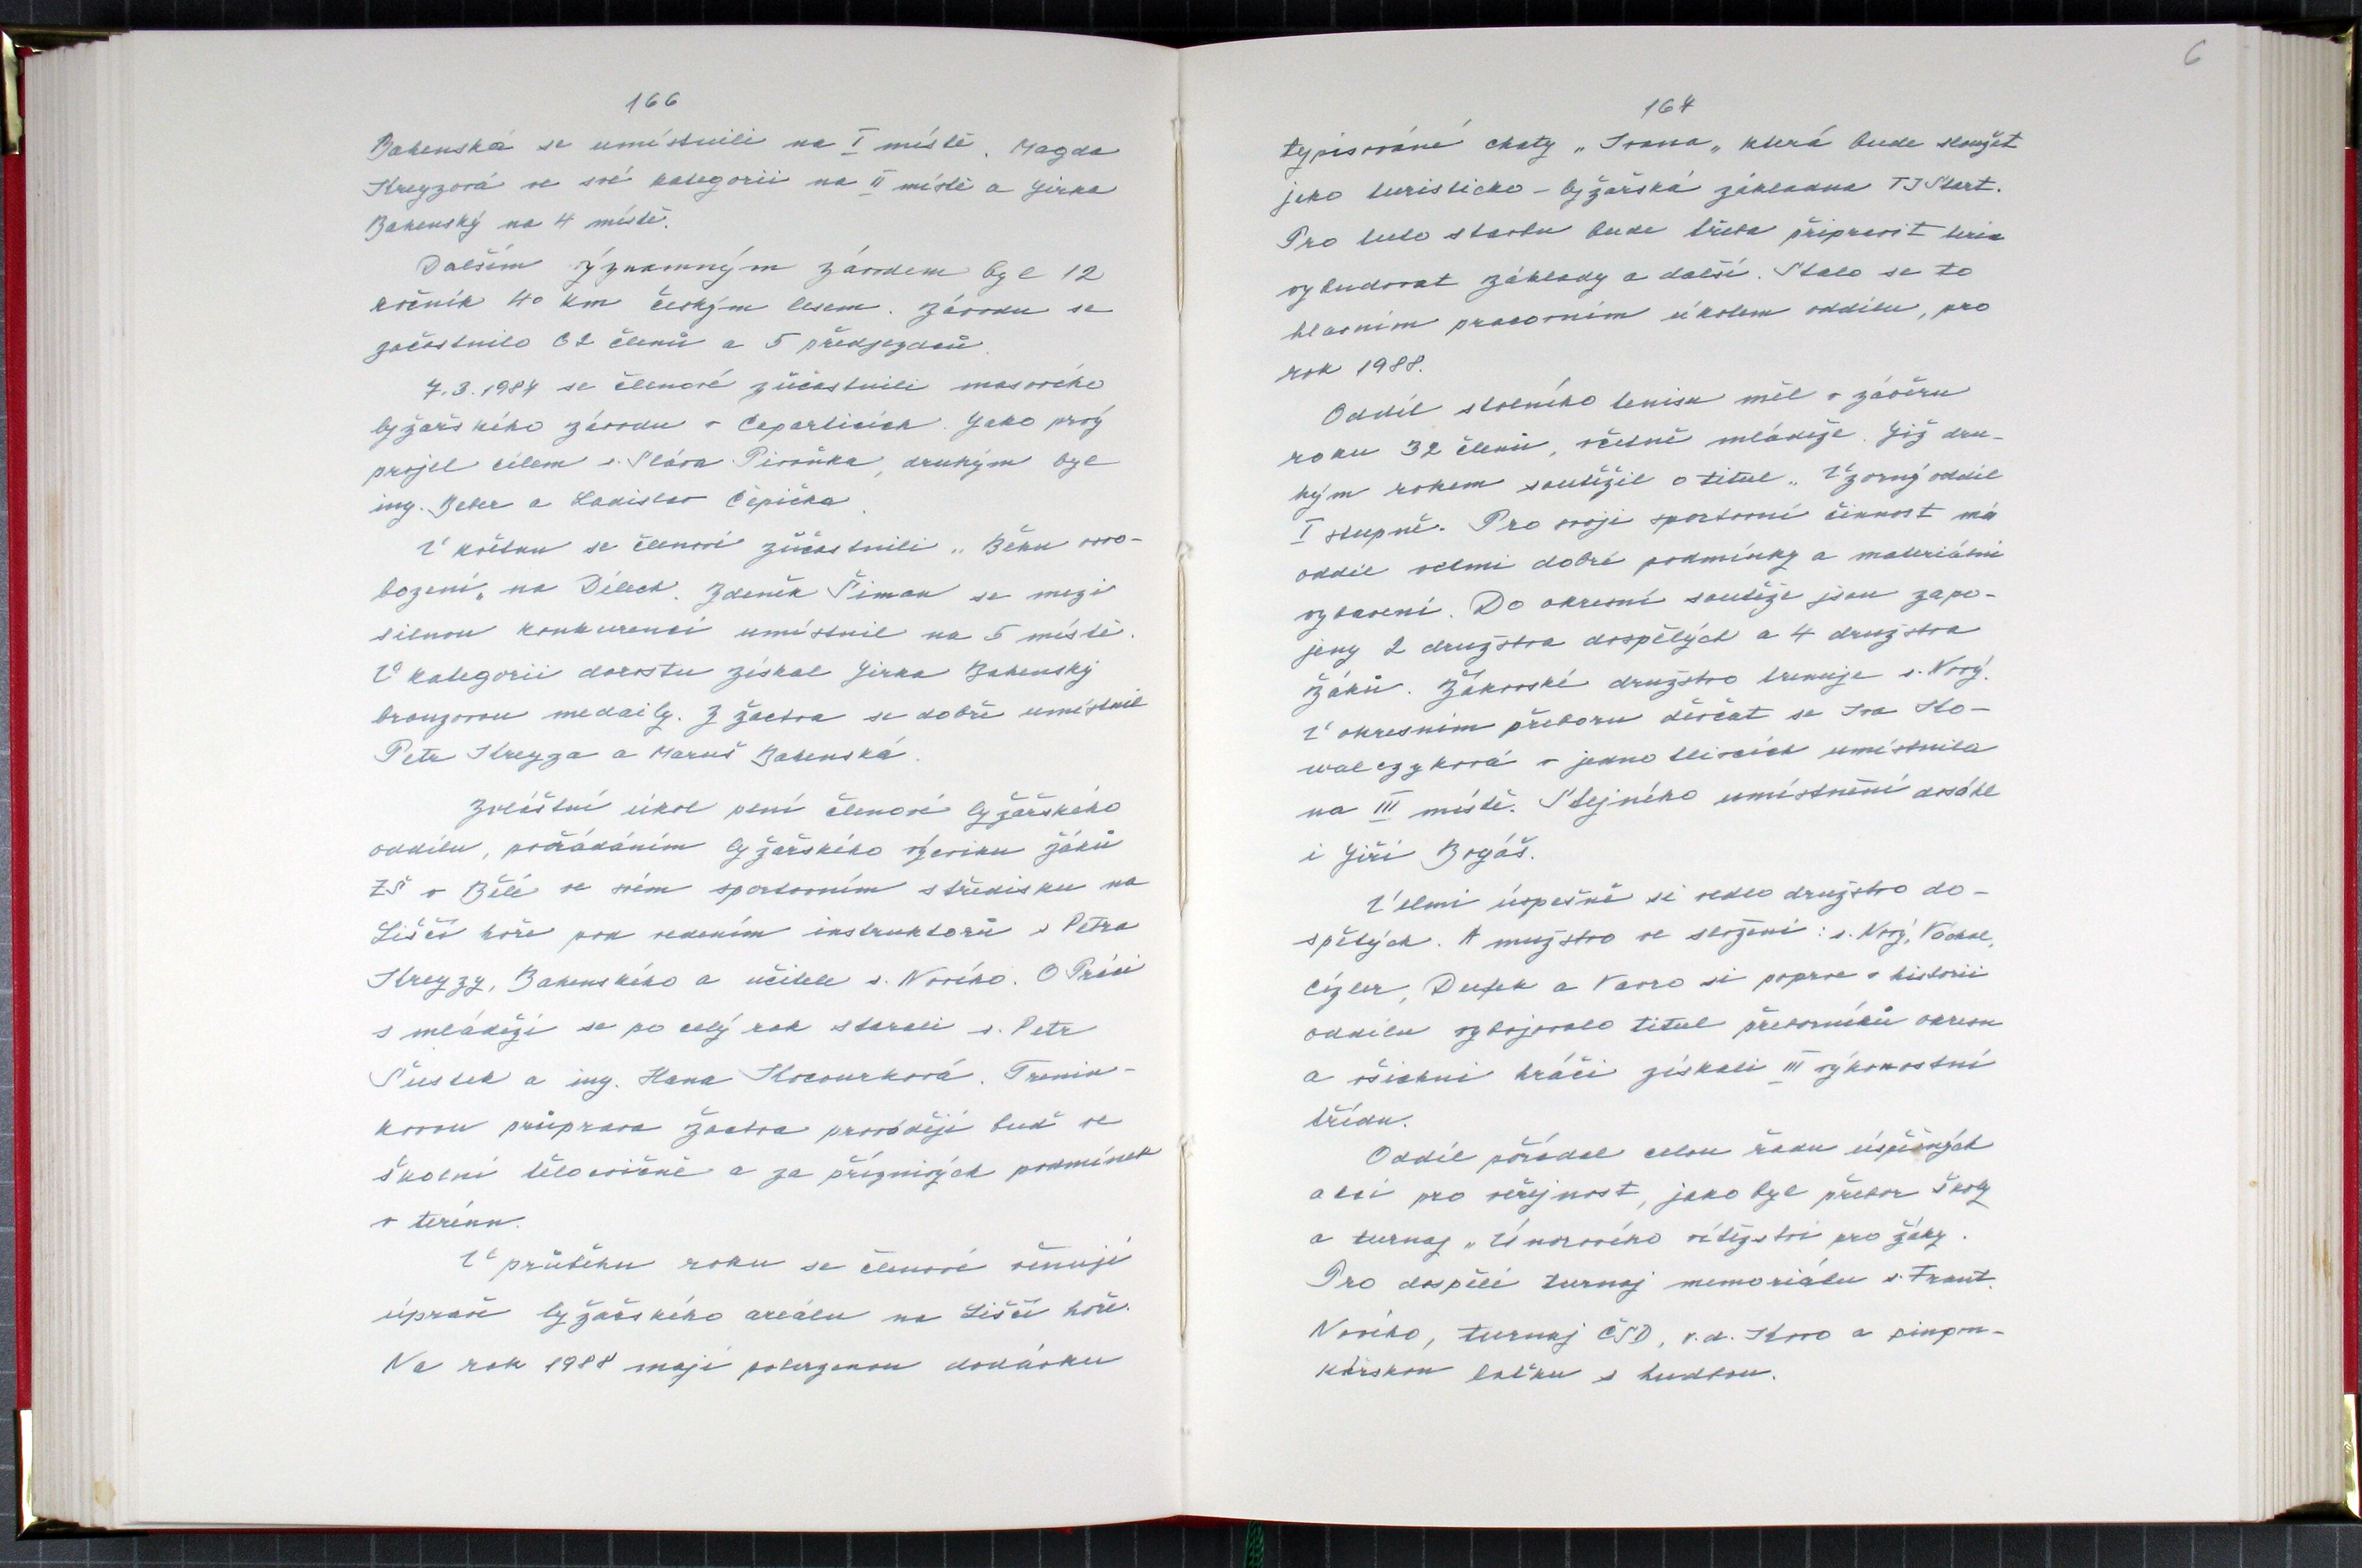 166
Bahenská se umístnili na I místě. Magda
Kreyzová ve své kategorii na II místě a Jirka
Bahenský na 4 místě.
Dalším význomným závodem byl 12
ročník 40 km českým lesem. Závodu se
začastnilo 62 členů a 5 předjezdců.
7.3.1987 se členové zůčastnili masového
lyžařského závodu v Čeparticích. Jako prvý
projel cílem s. Sláva Pivoňka, druhým byl
ing. Beber a Ladislav Čepička.
V květnu se členové zůčastnili „ Běhu osvo-
bození„ na Dílech. Zdeněk Šiman se mezi
silnou konkurencí umístnil na 5 místě.
V kategorii dorostu získal Jirka Bahenský
bronzovou medaily. Z žactva se dobře umístnil
Petr Kreyza a Maruš Bahenská.
Zvláštní úkol pení členové lyžařského
oddílu, pořádáním lyžařského výcviku žáků
ZŠ v Bělé ve svém sportovním středisku na
Liščí hoře pod vedením instruktorů s Petra
Kreyzy, Bahenského a učitele s. Nového. O Práci
s mládeží se po celý rok starali s. Petr
Šustek a ing. Hana Kocourková. Trenin-
kovou průprava žactva provádějí buď ve
školní tělocvičně a za příznivých podmínek
v terénu.
V průběhu roku se členové věnují
úpravě lyžařského areálu na Liščí hoře.
Na rok 1988 mají potvrzenou dodávku
6
167
typisováné chaty „ Ivana „ která bude sloužit
jako turisticko - lyžařská základna TJ Start.
Pro tuto stavbu bude třeba připravit terén
vybudovat základy a další. Stalo se to
hlavním pracovním úkolem oddílu, pro
rok 1988.
Oddíl stolního tenisu měl v závěru
roku 32 členů, včetně mládeže. Již dru-
hým rokem soutěžil o titul „ Vzorný oddíl
I stupně. Pro svoji sportovní činnost má
oddíl velmi dobré podmínky a materiální
vybavení. Do okresní soutěže jsou zapo-
jeny 2 družstva dospělých a 4 družstva
žáků. Žákovské družstvo trenuje s. Nový.
V okresním přeboru děvčat se Iva Ko-
walczyková v jednotlivcích umístnila
na III místě. Stejného umístnění dosáhl
i Jiří Bogáš.
Velmi úspešně si vedlo družstvo do-
spělých. A mužstvo ve složení : s. Nový, Váchal,
Cízler, Dufek a Vavro si poprve v historii
oddílu vybojovalo titul přeborníků okresu
a všichni hráči získali III výkonostní
třídu.
Oddíl pořádal celou řadu úspěšných
akcí pro veřejnost, jako byl přebor školy
a turnaj „ Únorového vítězství pro žáky.
Pro dospělé turnaj memoriálu s. Frant.
Nového, turnaj ČSD, v.d. Kovo a pinpon-
kářskou laťku s hudbou.